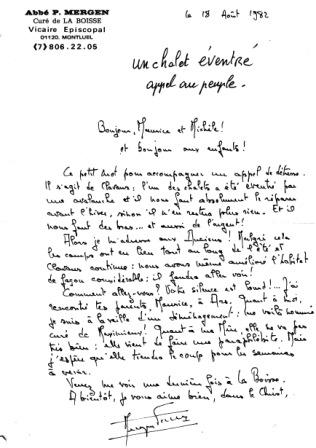 Abbé P. MERGEN
Curé de LA BOISSE
Vicaire Episcopal
01120. MONTLUEL
(7) 806.22.05
le 18 Août 1982
un chalet éventré
appel au peuple.
Bonjour, Maurice et Michèle!
et bonjour aux enfants!
Ce petit mot pour accompagner un appel de détresse.
Il s'agit de Clavans: l'un des chalets a été éventré par
une avalanche et il nous faut absolument le réparer
avant l'hiver, sinon il n'en restera plus rien. Et il
nous faut des bras... et aussi de l'argent!
Alors je m'adresse aux anciens. Malgré cela
les camps ont eu lieu tout au long de l'été et
Clavans continue: nous avons même amélioré l'habitat
de façon considérable; il faudra aller voir!
Comment allez-vous? Votre silence est lourd!... J'ai
rencontré tes parents, Maurice, à Ars. Quant à moi,
je suis à la veille d'un déménagement: me voilà nommé
curé de Meximieux! Quant à ma Mère, elle ne va pas
très bien: elle vient de faire une paraphlébite. Mais
j'espère qu'elle tiendra le coup pour les semaines
à venir.
Venez me voir une dernière fois à La Boisse.
A bientôt, je vous aime bien, dans le Christ,